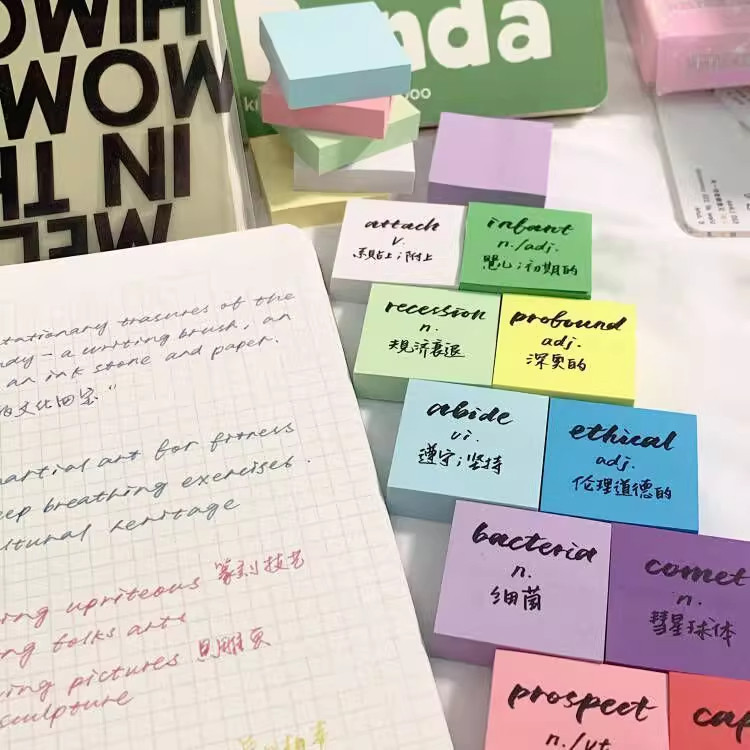 HIMO
WOW
IN TH
MEL
anda
attach
v.
系贴上;附上
infant
n./adj.
婴儿;初期的
recession
n.
规济衰退
profound
adj.
深奥的
abide
vi.
遵守;坚持
ethical
adj.
伦理道德的
bacteria
n.
细菌
comet
n.
彗星球体
prospect
n./vt
cap
tationary trasures of the
dy - a writing brush, an
an ink stone and paper.
的文化四宝"
martial art for fitness
eep breathing exercises.
ltural heritage
ing upriteous 篆刻技艺
ng folks arts
ing pictures
sculpture